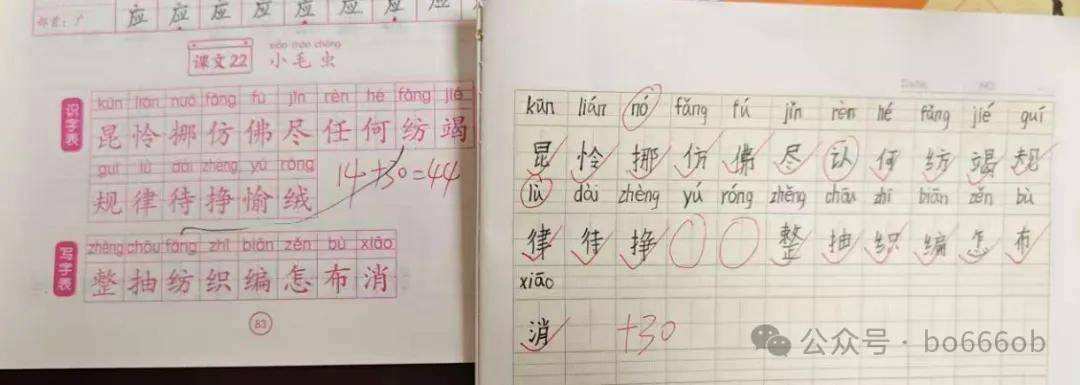 部首：广 应 应 应 应 应 应 应 应
xiǎo máo chóng
课文22 小毛虫
识字表
kūn lián nuó fǎng fú jǐn rèn hé fǎng jié
昆 怜 挪 仿 佛 尽 任 何 纺 竭
guī lǜ dài zhèng yú róng
规 律 待 挣 愉 绒
14+30=44
写字表
zhěng chōu fǎng zhī biān zěn bù xiāo
整 抽 纺 织 编 怎 布 消
83
Date. NO.
kūn lián nó fǎng fú jǐn rèn hé fǎng jié guī
昆 怜 挪 仿 佛 尽 认 何 纺 竭 规
lù dài zhèng yú róng zhěng chōu zhī biān zěn bù
律 待 挣 整 抽 织 编 怎 布
xiāo
消 +30
公众号·bo666ob